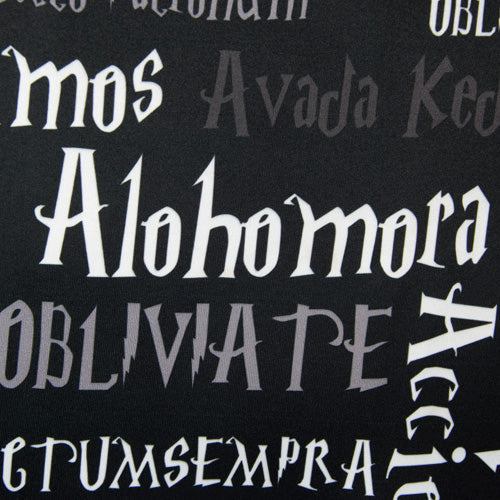 OBL
mos
Avada Ked
Alohomora
OBLIVIATE
Accio
ECTUMSEMPRA